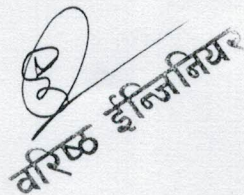 वरिष्ठ ईन्जिनियर